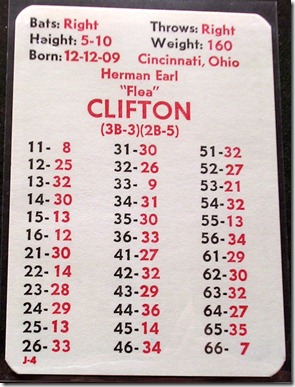 Bats: Right Throws: Right
Height: 5-10 Weight: 160
Born: 12-12-09 Cincinnati, Ohio
Herman Earl
"Flea"
CLIFTON
(3B-3)(2B-5)
11- 8 31-30 51-32
12-25 32-26 52-27
13-32 33- 9 53-21
14-30 34-31 54-32
15-13 35-30 55-13
16-12 36-33 56-34
21-30 41-27 61-29
22-14 42-32 62-30
23-28 43-29 63-32
24-29 44-28 64-27
25-13 45-14 65-35
26-33 46-34 66- 7
J-4